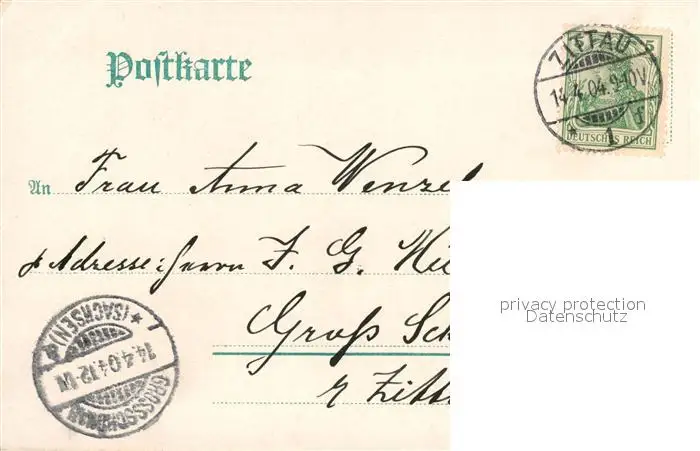 Postkarte
ZITTAU
14.4.04.9-10V.
* 1 f
5
DEUTSCHES REICH
An Frau Anna Wenzel
p. Adresse: Herrn F. G. Mü
Groß Sch
Zitt
GROSSSCHÖNAU
14.4.04.12-1N
* (SACHSEN) *
privacy protection
Datenschutz